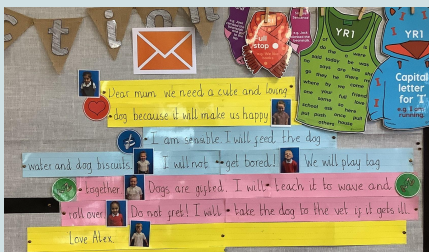 tion
full stop
YR1
or do the were said today be was says are has his go they he there me where by come we your me friend one some love school ask so here full once pull put push our others house
YR1
Capital letter for 'I'
e.g. I am running.
Dear mum we need a cute and loving
dog because it will make us happy
I am sensible. I will feed the dog
water and dog biscuits. I will not get bored! We will play tag
together Dogs are gifted. I will teach it to wave and
roll over. Do not fret! I will take the dog to the vet if it gets ill.
Love Alex